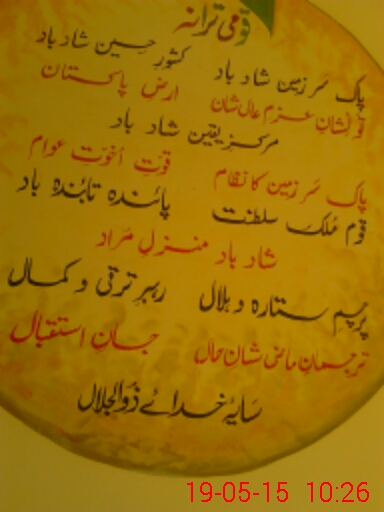 قومی ترانہ
پاک سرزمین شاد باد کشورِ حسین شاد باد
تو نشانِ عزمِ عالی شان ارضِ پاکستان
مرکزِ یقین شاد باد
پاک سرزمین کا نظام قوتِ اخوتِ عوام
قوم ملک سلطنت پائندہ تابندہ باد
شاد باد منزلِ مراد
پرچمِ ستارہ و ہلال رہبرِ ترقی و کمال
ترجمانِ ماضی شانِ حال جانِ استقبال
سایۂ خدائے ذوالجلال
19-05-15 10:26